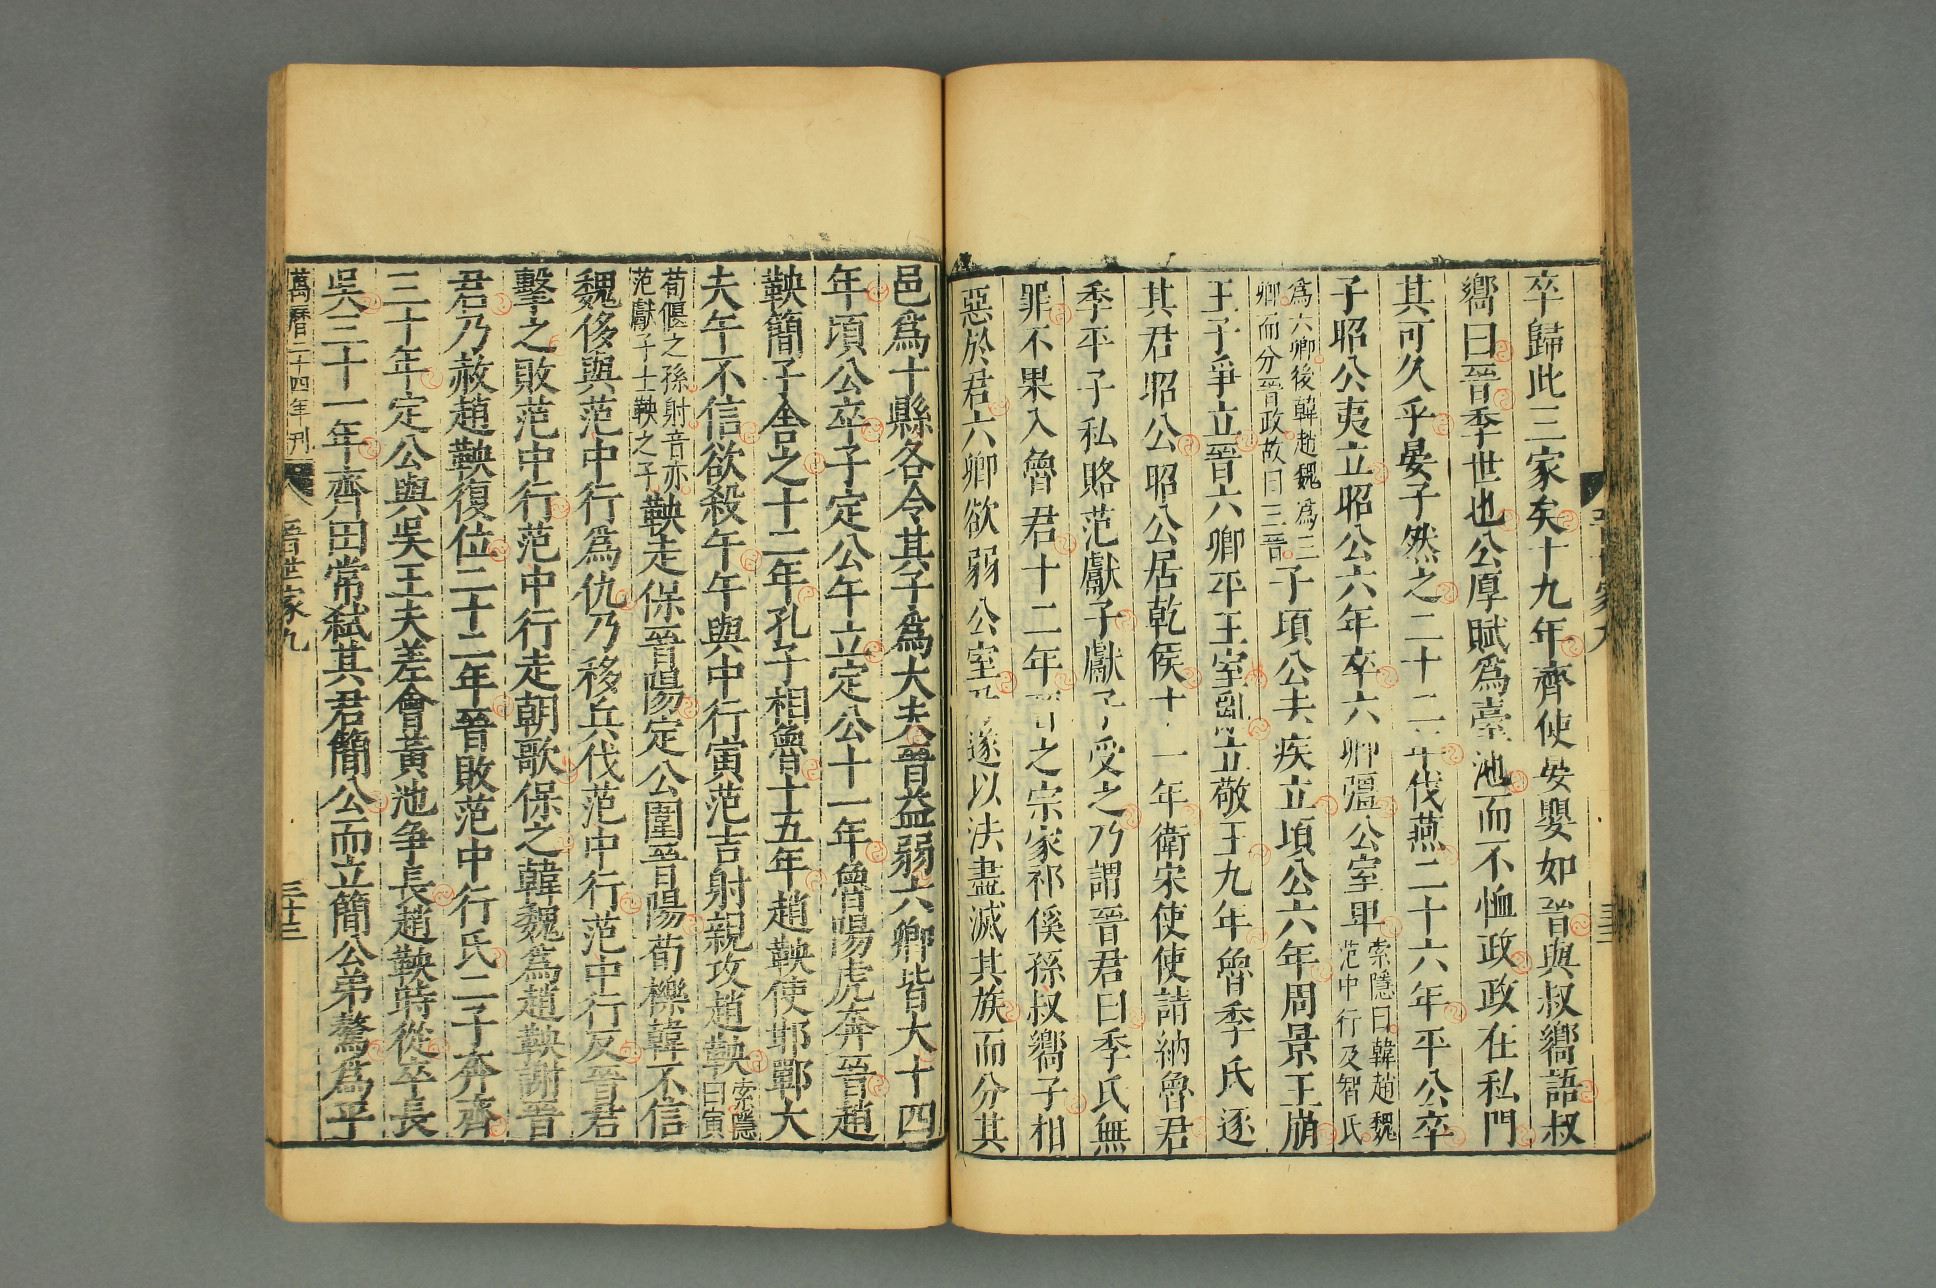 卒歸此三家矣十九年齊使晏嬰如晉與叔嚮語叔
嚮曰晉季世也公厚賦爲臺池而不恤政政在私門
其可久乎晏子然之二十二年伐燕二十六年平公卒
子昭公夷立昭公六年卒六卿彊公室卑索隱曰韓趙魏
范中行及智氏
爲六卿後韓趙魏爲三
卿而分晉政故曰三晉子頃公去疾立頃公六年周景王崩
王子爭立晉六卿平王室亂立敬王九年魯季氏逐
其君昭公昭公居乾侯十一年衛宋使使請納魯君
季平子私賂范獻子獻子受之乃謂晉君曰季氏無
罪不果入魯君十二年晉之宗家祁傒孫叔嚮子相
惡於君六卿欲弱公室乃遂以法盡滅其族而分其
邑爲十縣各令其子爲大夫晉益弱六卿皆大十四
年頃公卒子定公午立定公十一年魯陽虎奔晉趙
鞅簡子舍之十二年孔子相魯十五年趙鞅使邯鄲大
夫午不信欲殺午午與中行寅范吉射親攻趙鞅索隱
曰寅
荀偃之孫射音亦
范獻子士鞅之子鞅走保晉陽定公圍晉陽荀櫟韓不信
魏侈與范中行爲仇乃移兵伐范中行范中行反晉君
擊之敗范中行范中行走朝歌保之韓魏爲趙鞅謝晉
君乃赦趙鞅復位二十二年晉敗范中行氏二子奔齊
三十年定公與吳王夫差會黃池爭長趙鞅時從卒長
吳三十一年齊田常弒其君簡公而立簡公弟驁爲平
萬曆二十四年刊
晉世家九
三十三